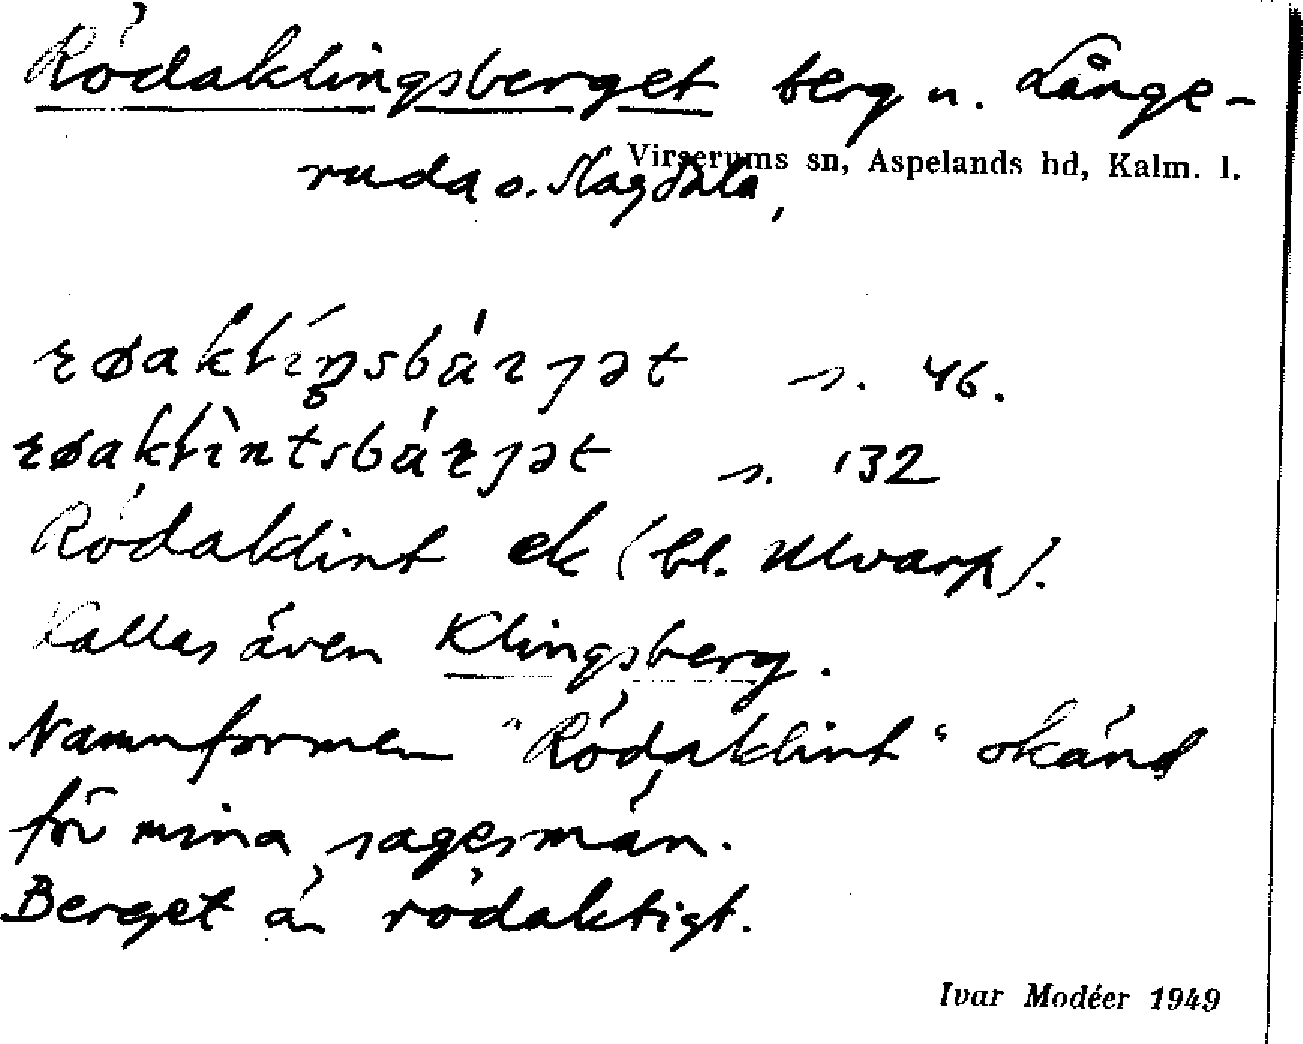 Rödaklingsberget berg u. Långe-
Virserums sn, Aspelands hd, Kalm. l.
ruda o. Slagdala,
s. 46.
s. 132
Rödaklint ek (bl. Ulvarp).
Kallas även Klingsberg.
Namnformen "Rödaklint" okänd
för mina sagesmän.
Berget är rödaktigt.
Ivar Modéer 1949